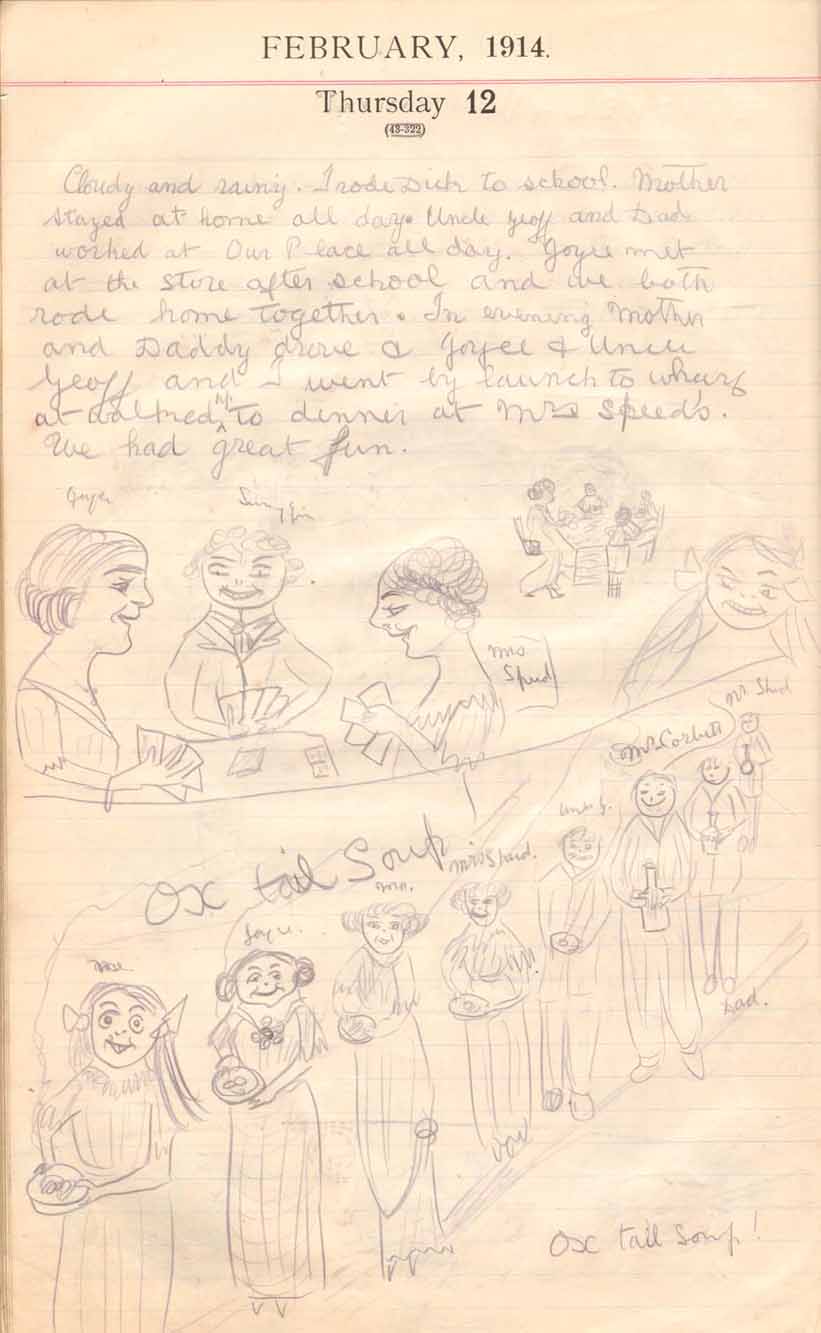 FEBRUARY, 1914.
Thursday 12
(43-322)
Cloudy and rainy. I rode Dick to school. Mother
stayed at home all day. Uncle Geoff and Dad
worked at Our Place all day. Joyce met
at the store after school and we both
rode home together. In evening Mother
and Daddy drove & Joyce & Uncle
Geoff and I went by launch to wharf
at and walked up to dinner at Mrs Speed's.
We had great fun.
Joyce
Mrs.
Speed
Mr. Speed
Mr. Corbett
Uncle G.
Ox tail Soup
Mrs Speed.
Mrs.
Joyce.
Me.
Dad.
Ox tail Soup!